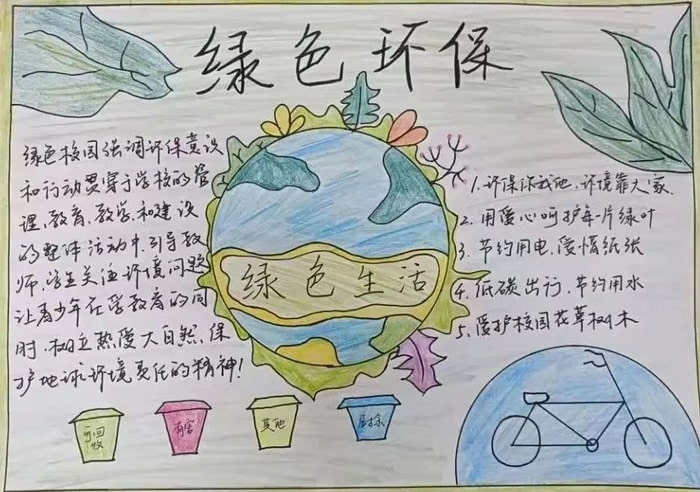 绿色环保
绿色校园强调环保意识
和行动贯穿于学校的管
理、教育、教学和建设
的整体活动中,引导教
师、学生关注环境问题
让青少年在受教育的同
时,树立热爱大自然、保
护地球环境责任的精神!
绿色生活
1.环保你我他,环境靠大家.
2.用爱心呵护每一片绿叶
3.节约用电,爱惜纸张
4.低碳出行,节约用水
5.爱护校园花草树木
可回
收
有害
其他
厨余